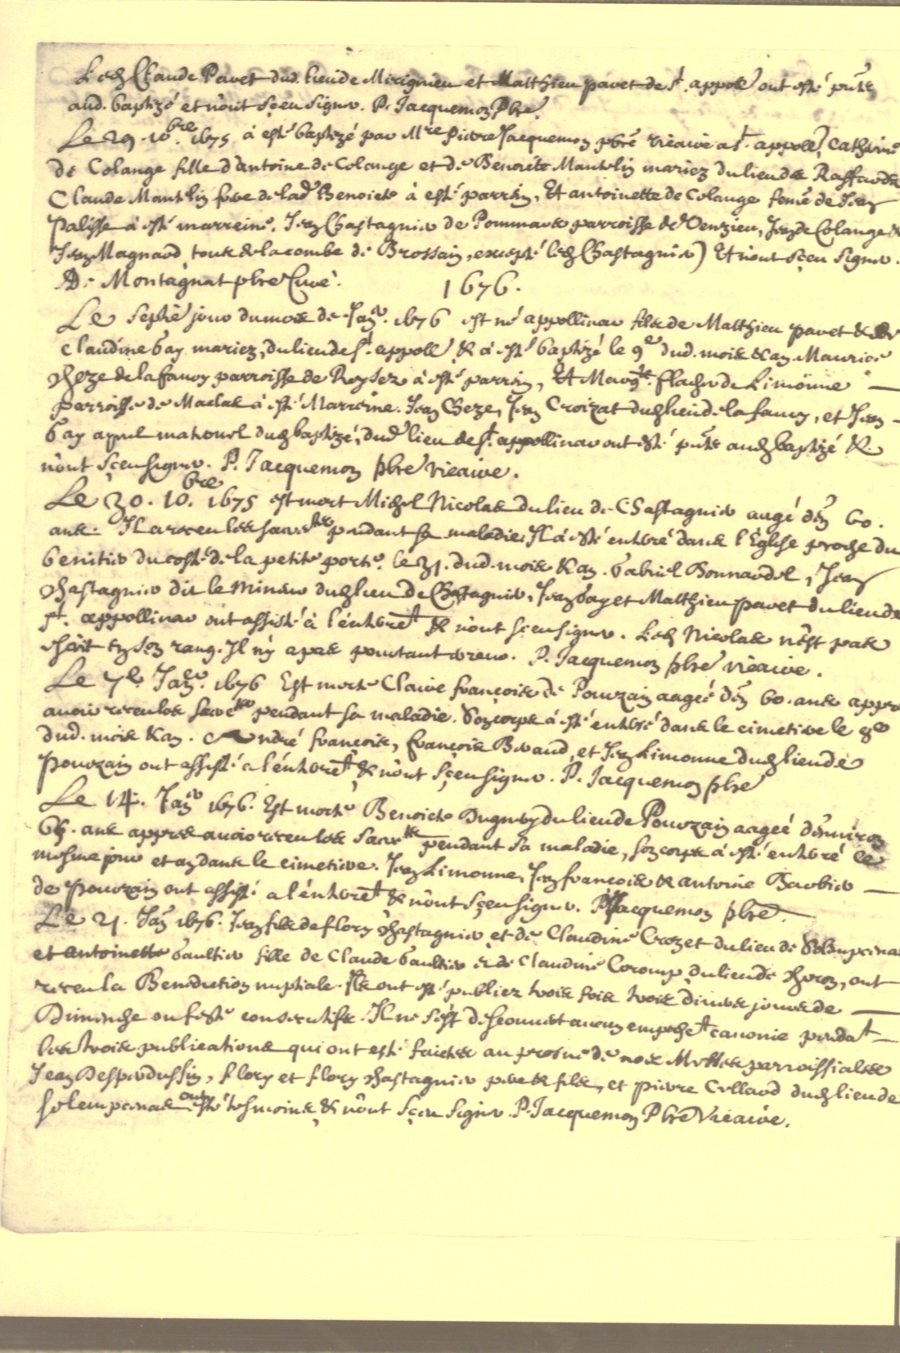 Led Claude Pavet dud. lieu de Mirignieu et Matthieu pavet de St. appolli ont esté pnts
aud. baptizé et n'ont sçeu signer. P. Jacquemon Pbre.
Le 29. 10bre. 1675 à esté baptizé par Mre Pierre Jacquemon pbre vicaire a St. appolli, Catherine
de Colange fille d'antoine de Colange et de Benoicte Mantelin mariez du lieu de
Claude Mantelin frere de lad. Benoicte à esté parrein, Et antoinette de Colange feme de Jean
Palisse à esté marreine. Jean Chastagnier de Pommare parroisse de Venzieu, Jean de Colange &
Jean Magnard tous de lacombe de Brossain, excepté led Chastagnier) Et n'ont sçeu signer.
De Montagnat pbre Curé.
1676.
Le septie jour du mois de Janer. 1676 est né appollinar fils de Matthieu pavet & de
Claudine bay mariez, du lieu de St. appolli & à esté baptizé le 9e dud. mois & an Maurice
cheze de lafaury parroisse de Roysez à esté parrein, Et flacher de Limonne
parroisse de Maclas à esté Marreine. Jean Cheze, Jean Croizat dud lieu de lafaury, et Jean
bay ayeul maternel dud baptizé, dud lieu de St. appollinar ont esté pnts aud baptizé &
n'ont sçeu signer. P. Jacquemon pbre vicaire.
Le 30. 10.bre 1675 est mort Michel Nicolas du lieu de Chastagnier aagé den 60.
ans. Il a receu les sacrtes pendant sa maladie, Il à esté enterré dans l'Église proche du
benitier du costé de la petite porte. le 31. dud. mois & an. Gabriel Bonnardel, Jean
chastagnier dit le Mineur dud lieu de Chastagnier, Jean bay et Matthieu pavet du lieu de
St. appollinar ont assisté à l'enterrt & n'ont sceu signer. Led Nicolas n'est pas
escrit en son rang. Il n'y a pas pourtant erreur. P. Jacquemon pbre vicaire.
Le 7e. Janer. 1676 Est morte Claire françoise de Pourzain aagée den 60. ans apprs
avoir receu les sacrtes pendant sa maladie. Son corps à esté enterré dans le cimetiere le 8e
dud. mois & an. André françois, françois Beraud, et Jean Limonne dud lieu de
Pourzain ont assisté a l'enterrt & n'ont sçeu signer. P. Jacquemon pbre
Le 14. Janer 1676. Est morte Benoicte Dugney du lieu de Pourzain aagée denviron
65. ans appres avoir receu les Sacrtes pendant sa maladie, son corps à esté enterré ce
mesme jour et an dans le cimetiere. Jean Limonne, Jean françois & antoine Barbier
de Pourzain ont assisté a l'enterrt & n'ont sçeu signer. P. Jacquemon pbre.
Le 21. Jan 1676. Jean fils de flory chastagnier et de Claudine Crozet du lieu de
et Antoinette Gaultier fille de Claude Gaultier & de Claudine du lieu de ont
receu la Benediction nuptiale. Ils ont esté publiez trois fois trois divers jours de
Dimanche ou feste consecutifs. Il ne s'est descouvert aucun empescht canonic pendat
les trois publications qui ont esté faictes au prosne de nos Messes parroissiales
Jean Despardussin, flory et flory chastagnier pere & fils, et pierre Collaud dud lieu de
ont esté tesmoins & n'ont sçeu signer P. Jacquemon Pbre Vicaire.